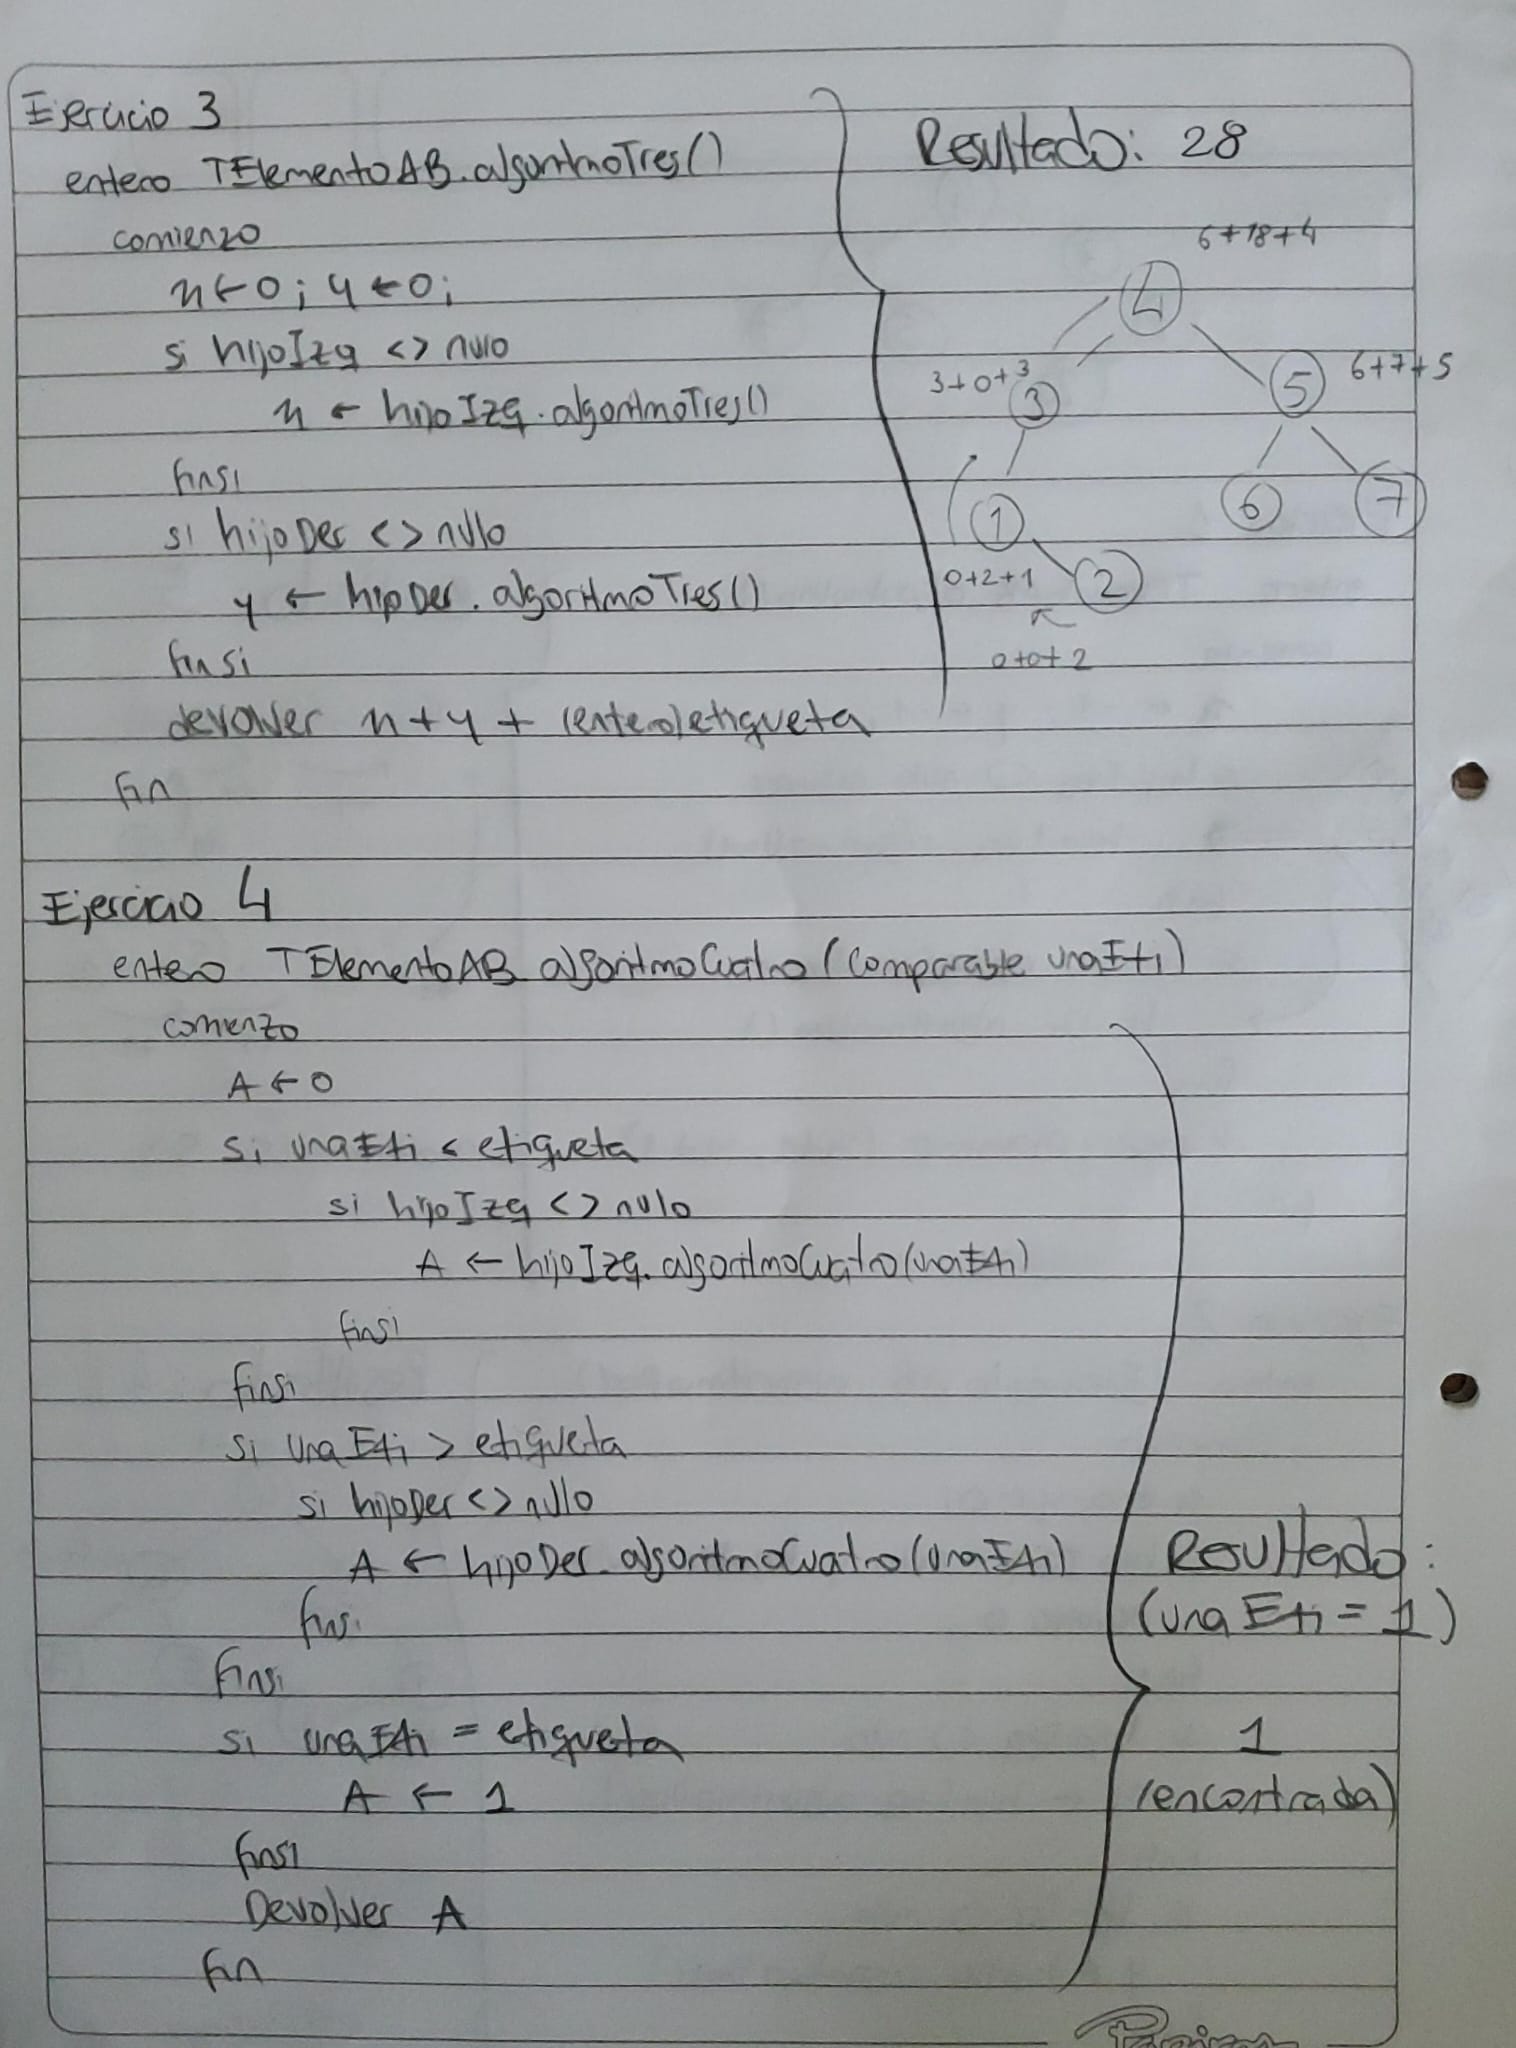 Ejercicio 3
entero TElementoAB.algoritmoTres()
comienzo
x ← 0; y ← 0;
si hijoIzq <> nulo
x ← hijoIzq.algoritmoTres()
finsi
si hijoDer <> nulo
y ← hijoDer.algoritmoTres()
finsi
devolver x + y + (entero)etiqueta
fin
Resultado: 28
6+18+4
4
3+0+3
3
5
6+7+5
1
6
7
0+2+1
2
0+0+2
Ejercicio 4
entero TElementoAB.algoritmoCuatro(Comparable unaEti)
comienzo
A ← 0
si unaEti < etiqueta
si hijoIzq <> nulo
A ← hijoIzq.algoritmoCuatro(unaEti)
finsi
finsi
si unaEti > etiqueta
si hijoDer <> nulo
A ← hijoDer.algoritmoCuatro(unaEti)
finsi
finsi
si unaEti = etiqueta
A ← 1
finsi
Devolver A
fin
Resultado:
(unaEti = 1)
1
(encontrada)